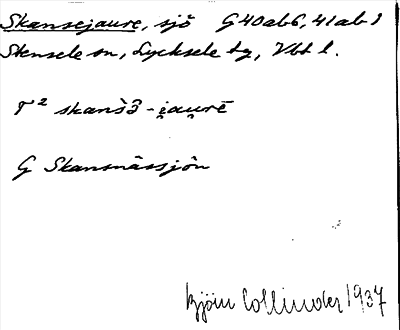 Skansejaure, sjö G 40ab6, 41ab1
Stensele sn, Lycksele tg, Vbt l.
T² skans̀ə̄ -i̯au̯rē
G Skansnässjön
Björn Collinder 1937